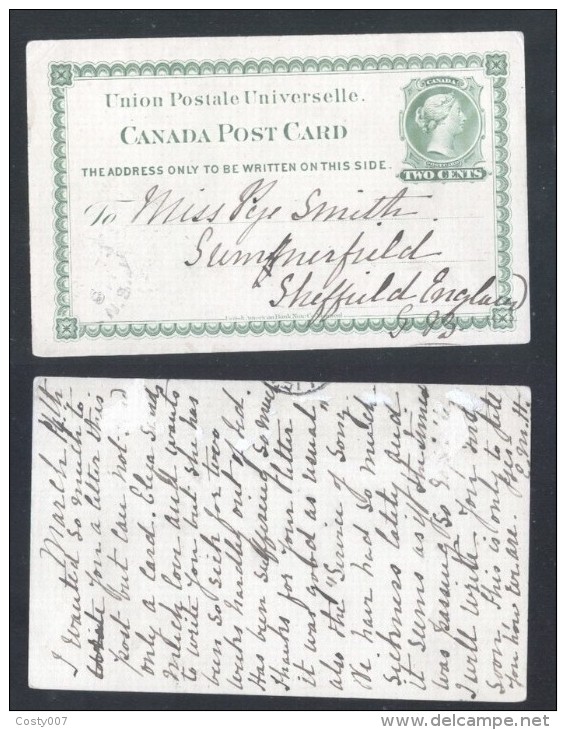 Union Postale Universelle.
CANADA POST CARD
THE ADDRESS ONLY TO BE WRITTEN ON THIS SIDE.
CANADA
TWO CENTS
To Miss Pye Smith
Summerfield
Sheffield England
G. B.
March
I wanted so much to
write you a letter this
post but can not.
only a card. Eliza sends
much love and wants
to write you but she has
been so sick for two
weeks hardly out of bed.
Has been suffering so much
thanks for your letter
it was good as usual
also the "Service of Song"
We have had so much
sickness lately and
it seems as if the time
was passing so
I will write you
soon. This is only to tell
you how we are.
Costy007
www.delcampe.net